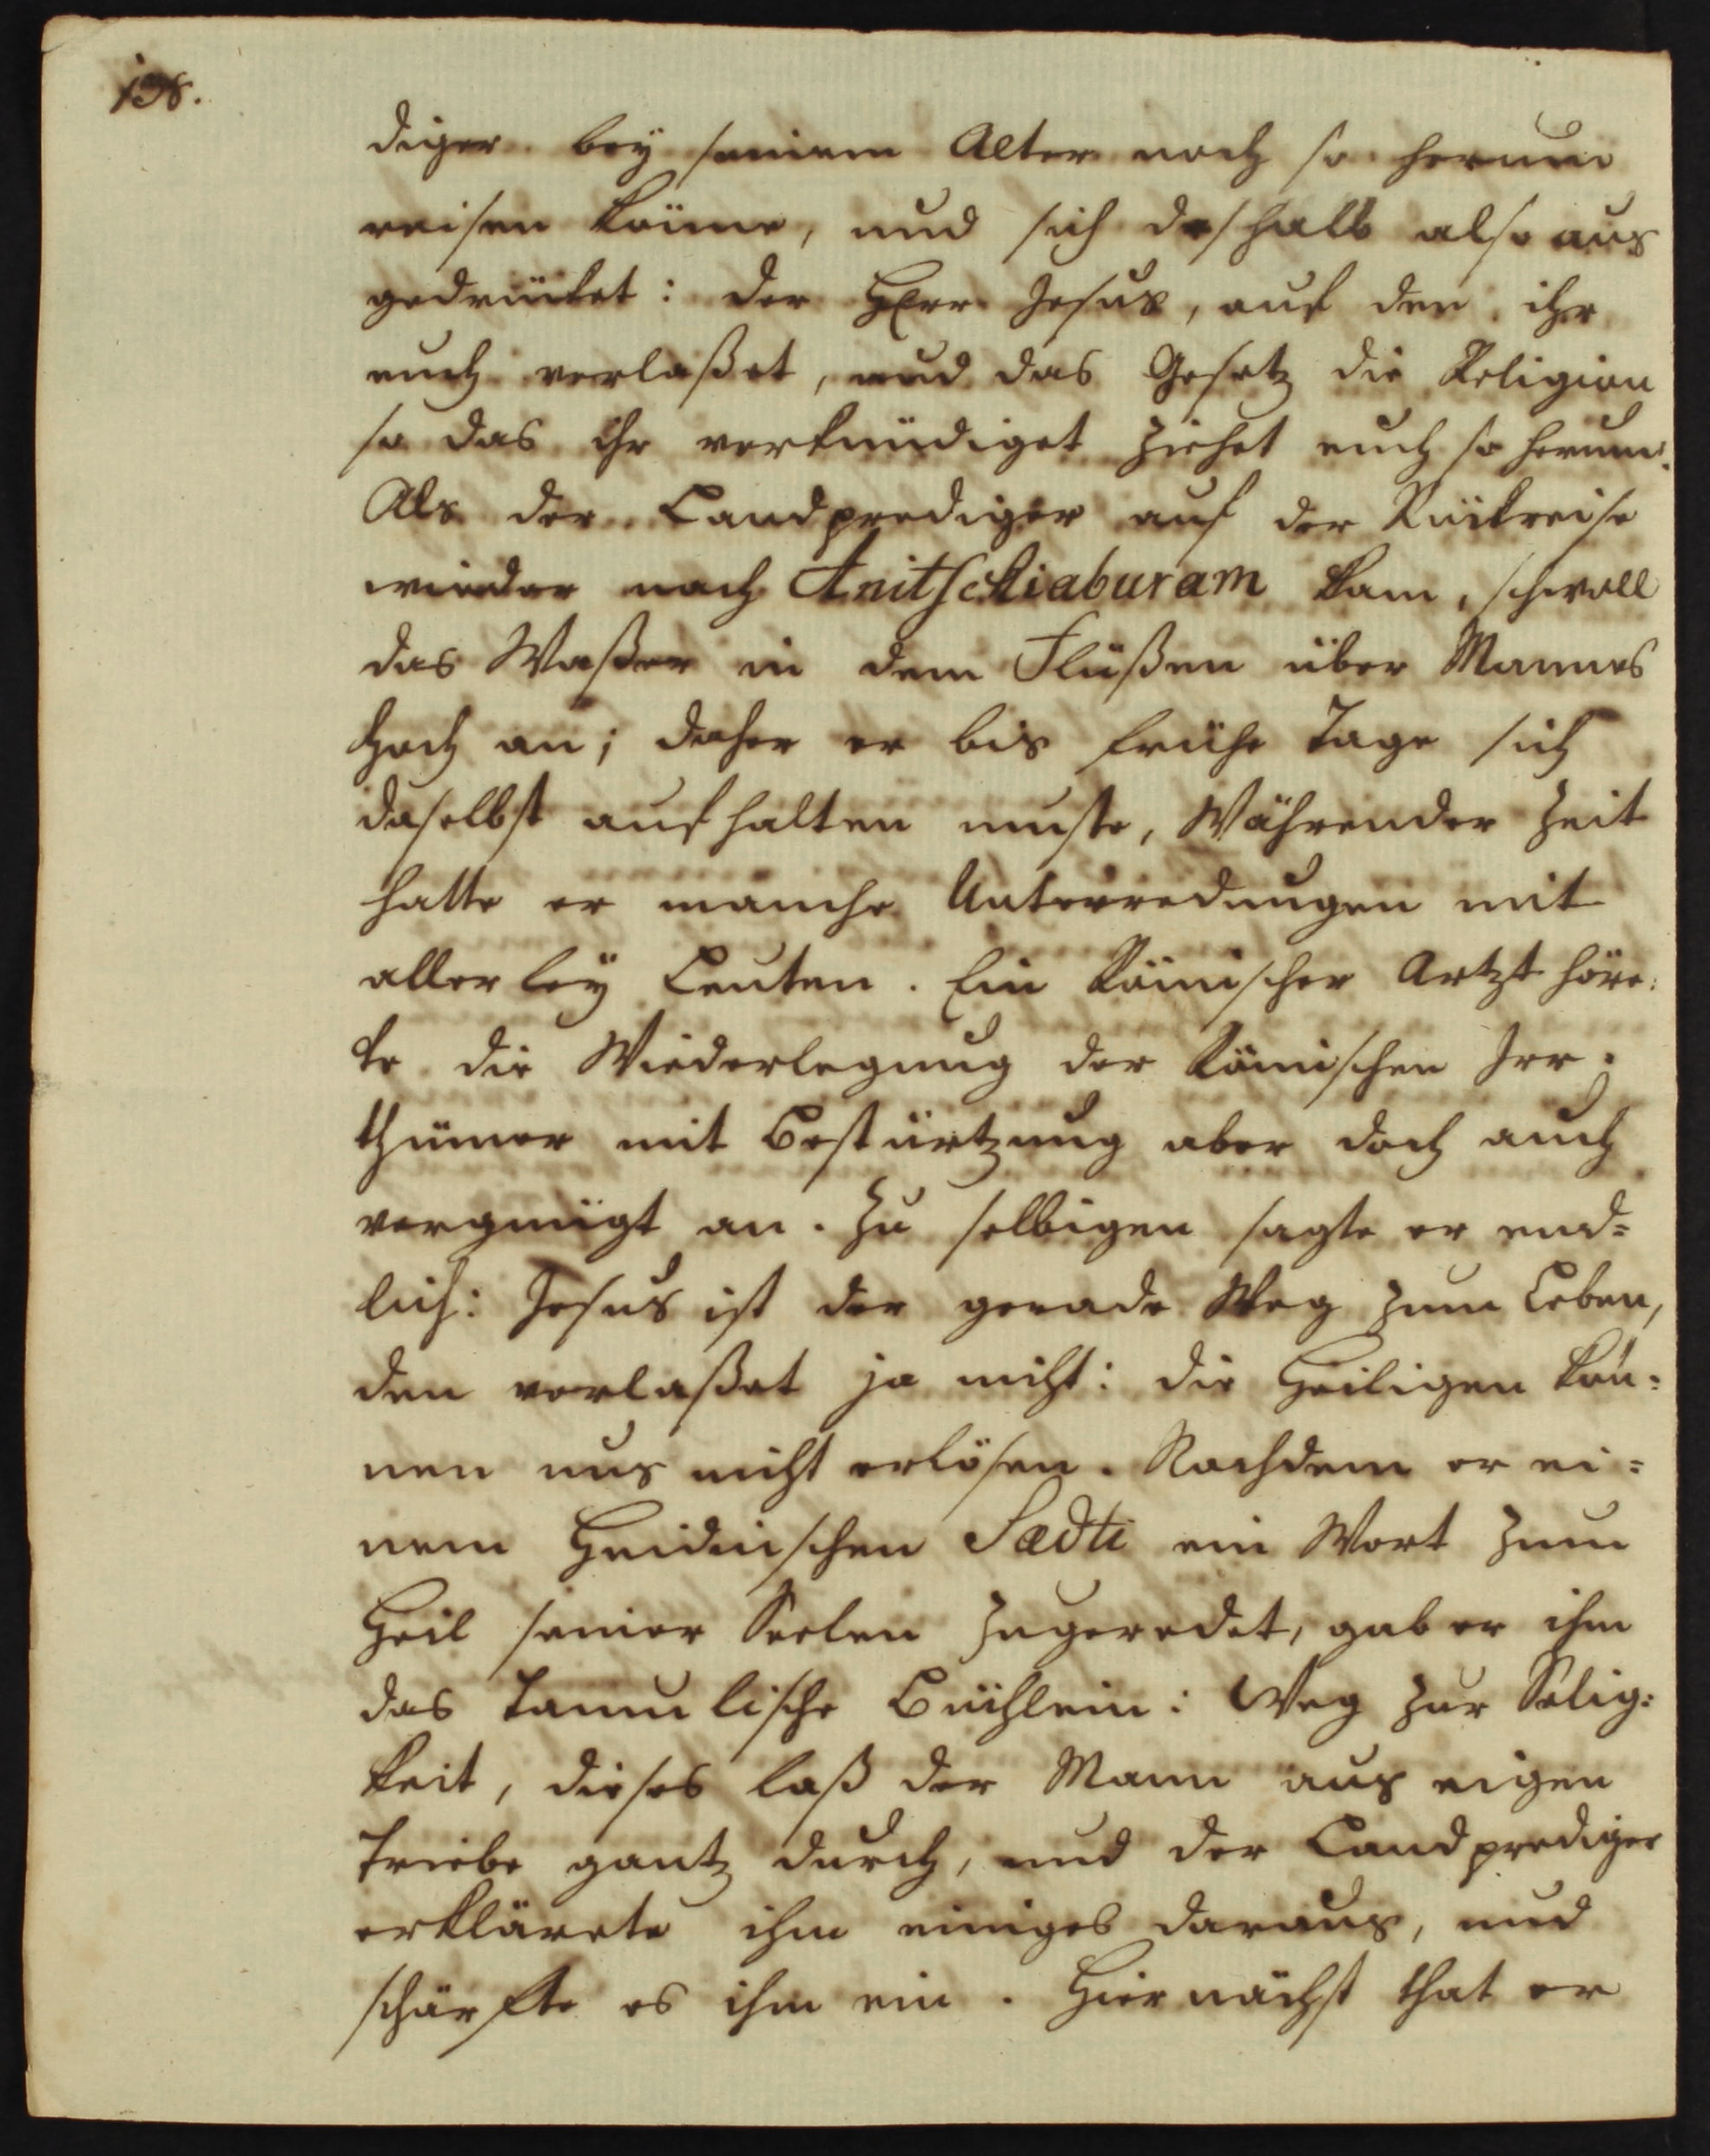 138.
diger bey seinem Alter noch so herum
reisen könne, und sich deshalb also aus
gedrücket: der HErr Jesus, auf den ihr
euch verlaßet, und das Gesetz die Religion
so das ihr verkündiget ziehet euch so herum.
Als der Landprediger auf der Rückreise
wieder nach Anitschiaburam kam, schwoll
das Waßer in dem Flüßen über Mannes
hoch an; daher er bis frühe Tage sich
daselbst aufhalten muste, Währender Zeit
hatte er manche Unterredungen mit
aller ley Leuten. Ein Römischer Artzt höre:
te die Wiederlegung der Römischen Irr:
thümer mit Bestürtzung aber doch auch
vergnügt an. Zu selbigen sagte er end=
lich: Jesus ist der gerade Weg zum Leben,
den verlaßet ja nicht: die Heiligen kön=
nen uns nicht erlösen. Nachdem er ei=
nem Heidnischen Sædti ein Wort zum
Heil seiner Seelen zugeredet, gab er ihm
das Tamulische Büchlein: Weg zur Selig:
keit, dieses laß der Mann aus eigen
Triebe gantz durch, und der Landprediger
erklärete ihm einiges daraus, und
schärfte es ihm ein. Hiernächst that er